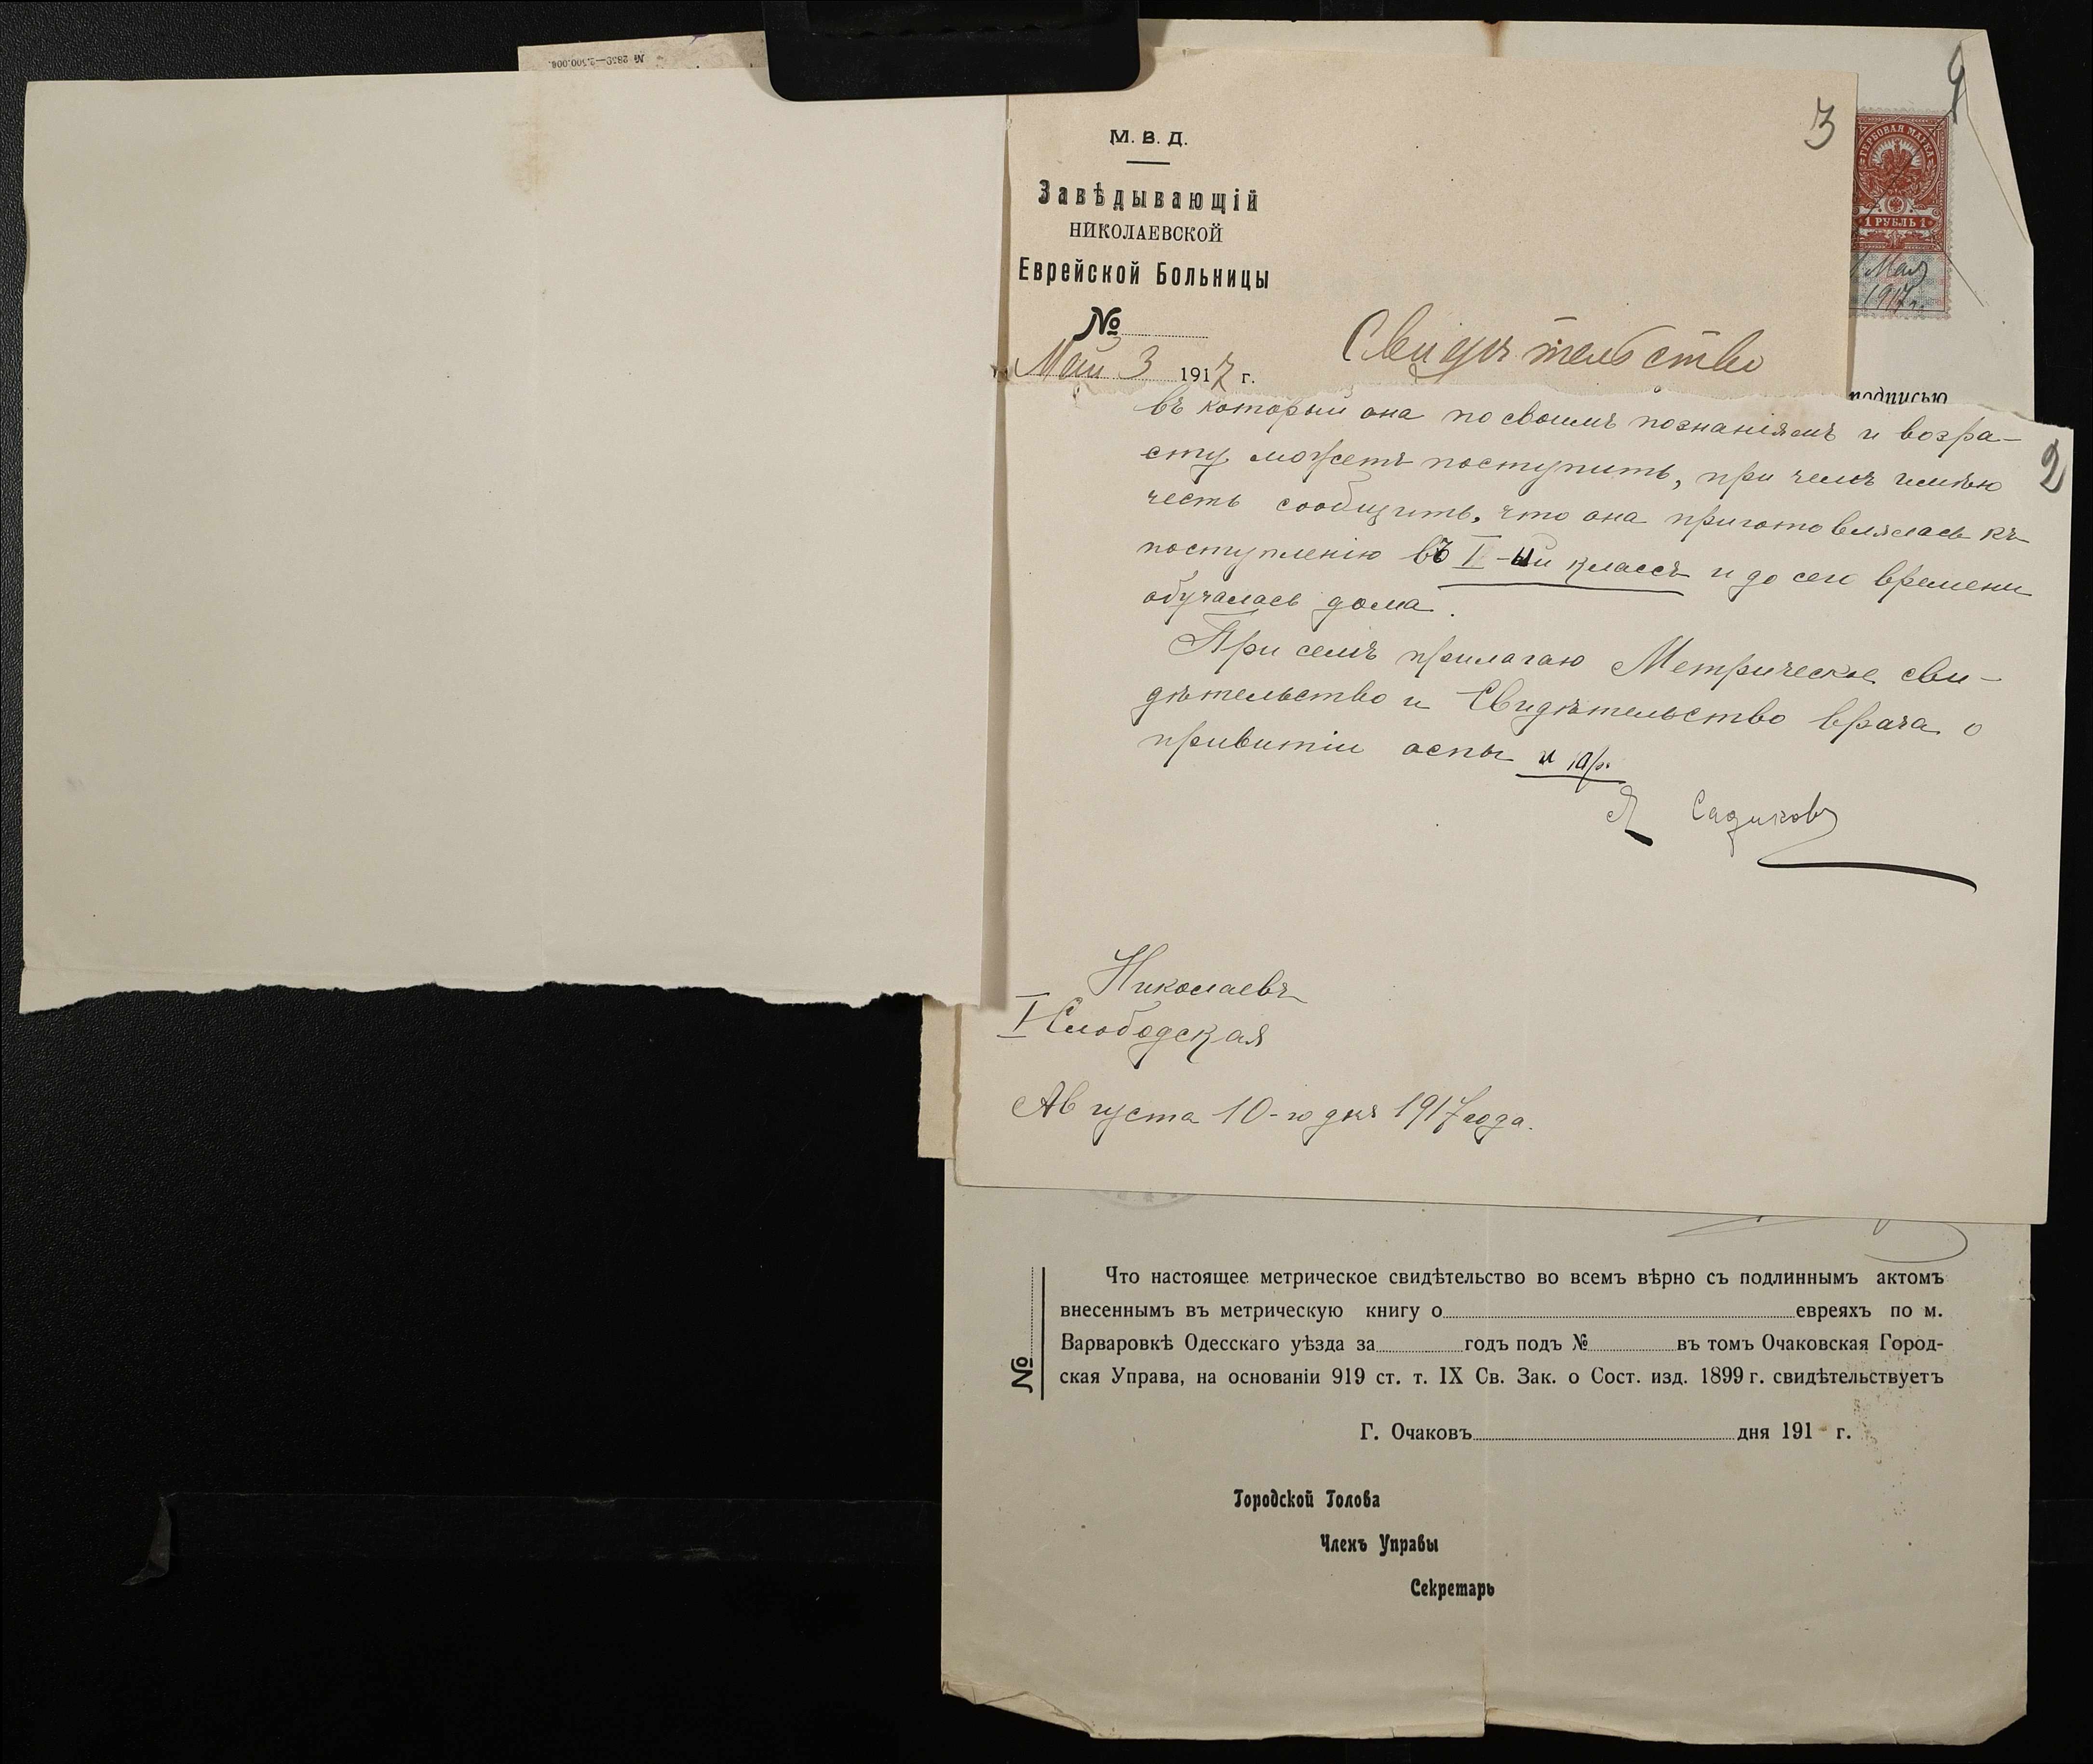 № 2859—2.500.000.
М. В. Д.
Завѣдывающій
НИКОЛАЕВСКОЙ
Еврейской Больницы
№
Маи 3 1917 г.
Свидѣтельство
3
ГЕРБОВАЯ МАРКА
1 РУБЛЬ 1
Мая
1917 г.
подписью
2
въ который она по своимъ познаніямъ и возра-
сту можетъ поступить, при чемъ имѣю
честь сообщить, что она приготовлялась къ
поступленію въ I-ый классъ и до сего времени
обучалась дома.
При семъ прилагаю Метрическое сви-
дѣтельство и Свидѣтельство врача о
привитіи оспы и 10р.
Я Садиковъ
Николаевъ
I Слободская
Августа 10-го дня 1917 года.
№
Что настоящее метрическое свидѣтельство во всемъ вѣрно съ подлиннымъ актомъ
внесеннымъ въ метрическую книгу о евреяхъ по м.
Варваровкѣ Одесскаго уѣзда за годъ подъ № въ томъ Очаковская Город-
ская Управа, на основаніи 919 ст. т. IX Св. Зак. о Сост. изд. 1899 г. свидѣтельствуетъ
Г. Очаковъ дня 191 г.
Городской Голова
Членъ Управы
Секретарь